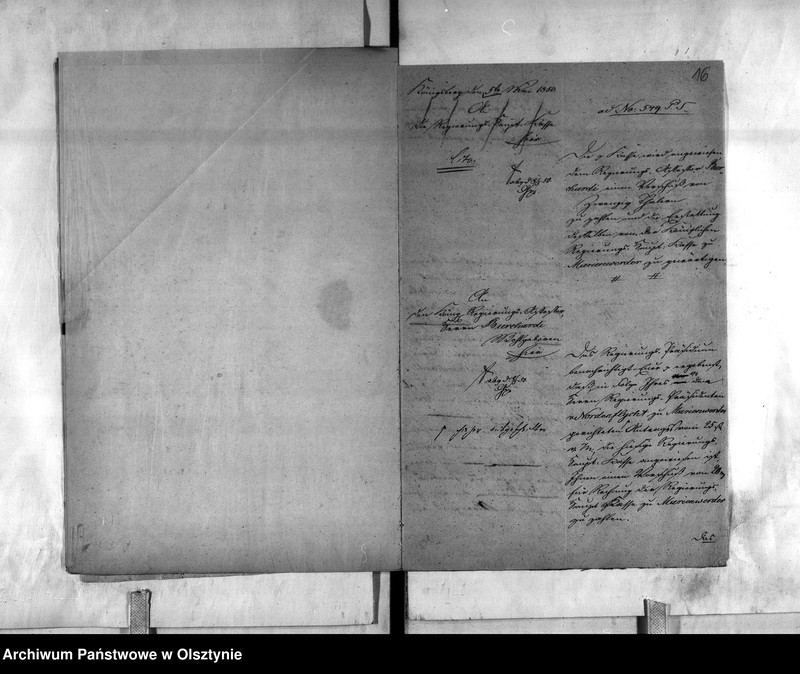 16
Königsberg den 5ten März 1850
An
die Regierungs-Haupt-Kasse
hier
Cito.
ad No. 549 P. S.
Die p Kasse wird angewiesen
dem Regierungs-Assessor Bur-
chardi einen Vorschuß von
Zwanzig Thalern
zu zahlen und die Erstattung
desselben von der Königlichen
Regierungs-Haupt-Kasse zu
Marienwerder zu gewärtigen
An
den König Regierungs-Assessor,
Herrn Burchardi
Wohlgeboren
hier
Das Regierungs-Präsidium
benachrichtigt Euer p ergebenst,
daß in Folge Ihres an den
Herrn Regierungs-Präsidenten
v Nordenflycht zu Marienwerder
gerichteten Antrages vom 25
v. M. die hiesige Regierungs-
Haupt-Kasse angewiesen ist,
Ihnen einen Vorschuß von
für Rechnung der Regierungs-
Haupt-Kasse zu Marienwerder
zu zahlen.
Das
Archiwum Państwowe w Olsztynie